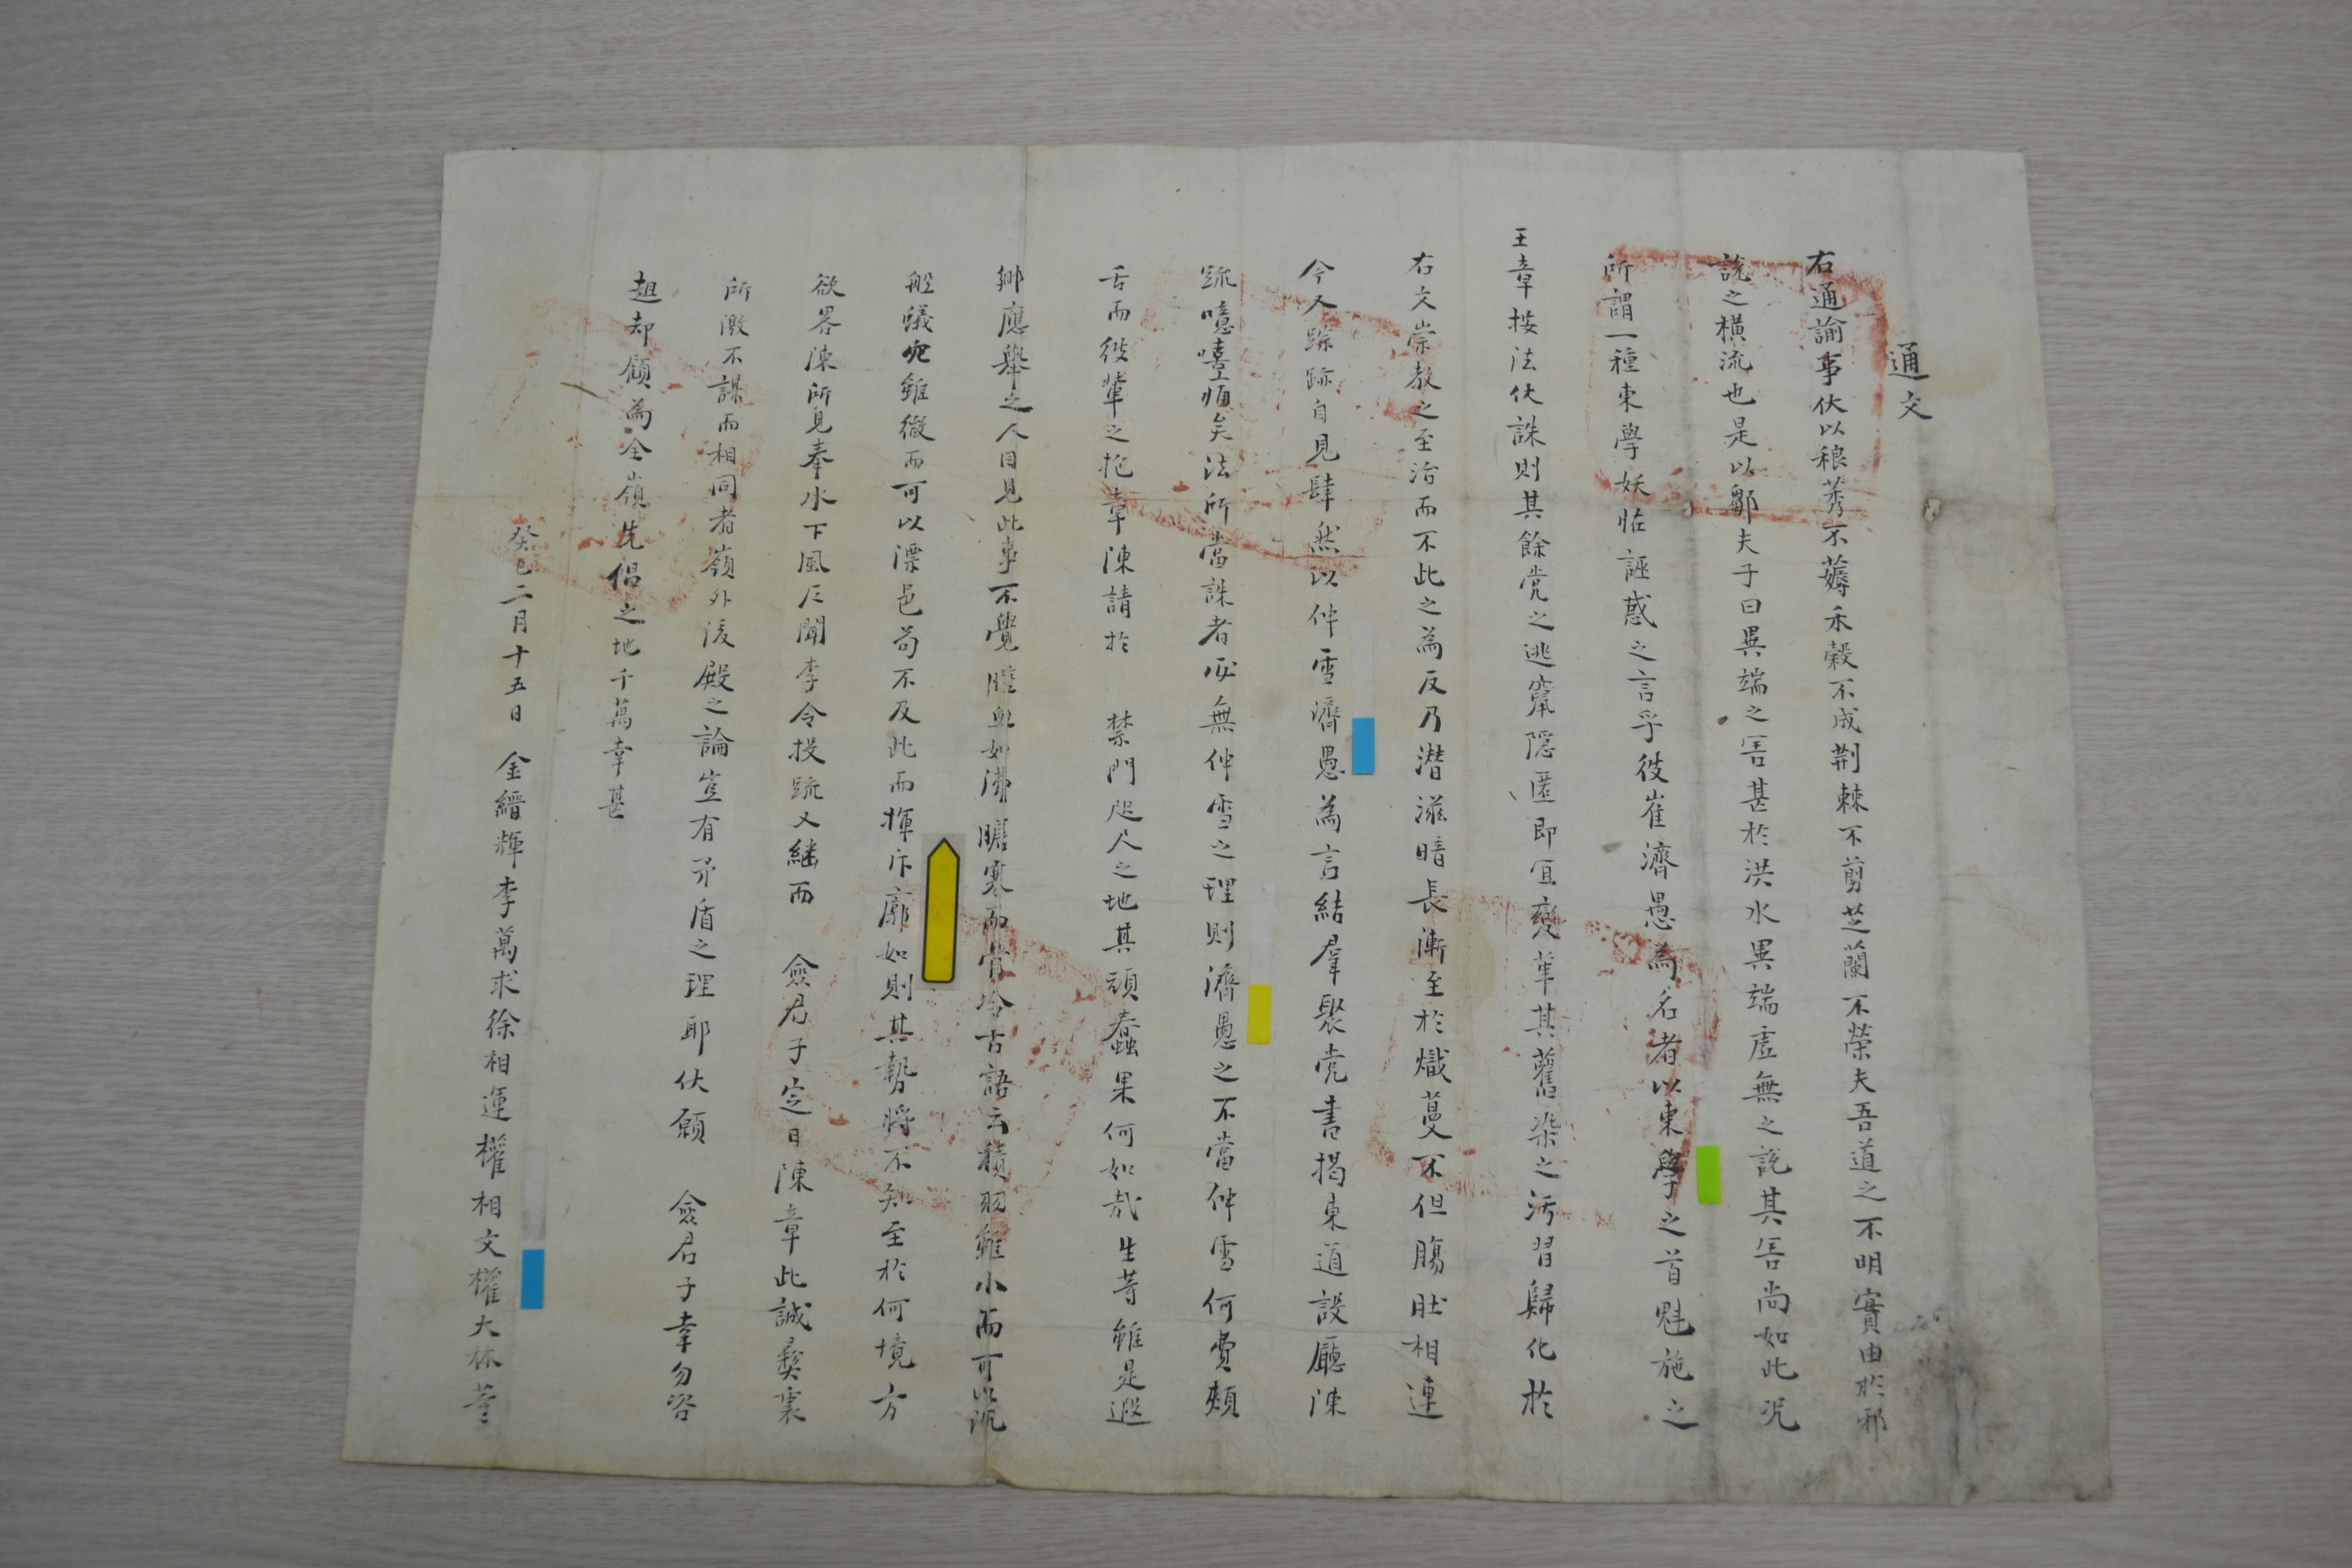 通文
右通諭事伏以稂莠不薅禾穀不成荆棘不剪芝蘭不榮夫吾道之不明實由於邪
說之橫流也是以鄒夫子曰異端之害甚於洪水異端虛無之說其害尚如此况
所謂一種東學妖怪誣惑之言乎彼崔濟愚為名者以東學之首魁施之
王章按法伏誅則其餘党之逃竄隠匿即宜變革其舊染之汚習歸化於
右文崇教之至治而不此之為反乃潜滋暗長漸至於熾蔓不但膓肚相連
今人踪跡自見肆然以伸雪濟愚為言結羣聚党書揭東道設廳陳
疏噫嘻痛矣法所當誅者必無伸雪之理則濟愚之不當伸雪何費頰
舌而彼輩之抱章陳請於 禁門咫尺之地其頑蠢果何如哉生等雖是遐
鄉應擧之人目見此事不覺腔血如沸膽寒而骨冷古語云積羽雖小而可以沉
船蟻穴雖微而可以漂邑苟不及此而揮斥廓如則其勢將不知至於何境方
欲畧陳所見奉水下風仄聞李令投疏又繼而 僉君子定日陳章此誠彜裏
所激不謀而相同者嶺外後殿之論豈有矛盾之理耶伏願 僉君子幸勿咨
趄却顧為全嶺先倡之地千萬幸甚
癸巳二月十五日 金縉輝李萬求徐相運權相文權大林等